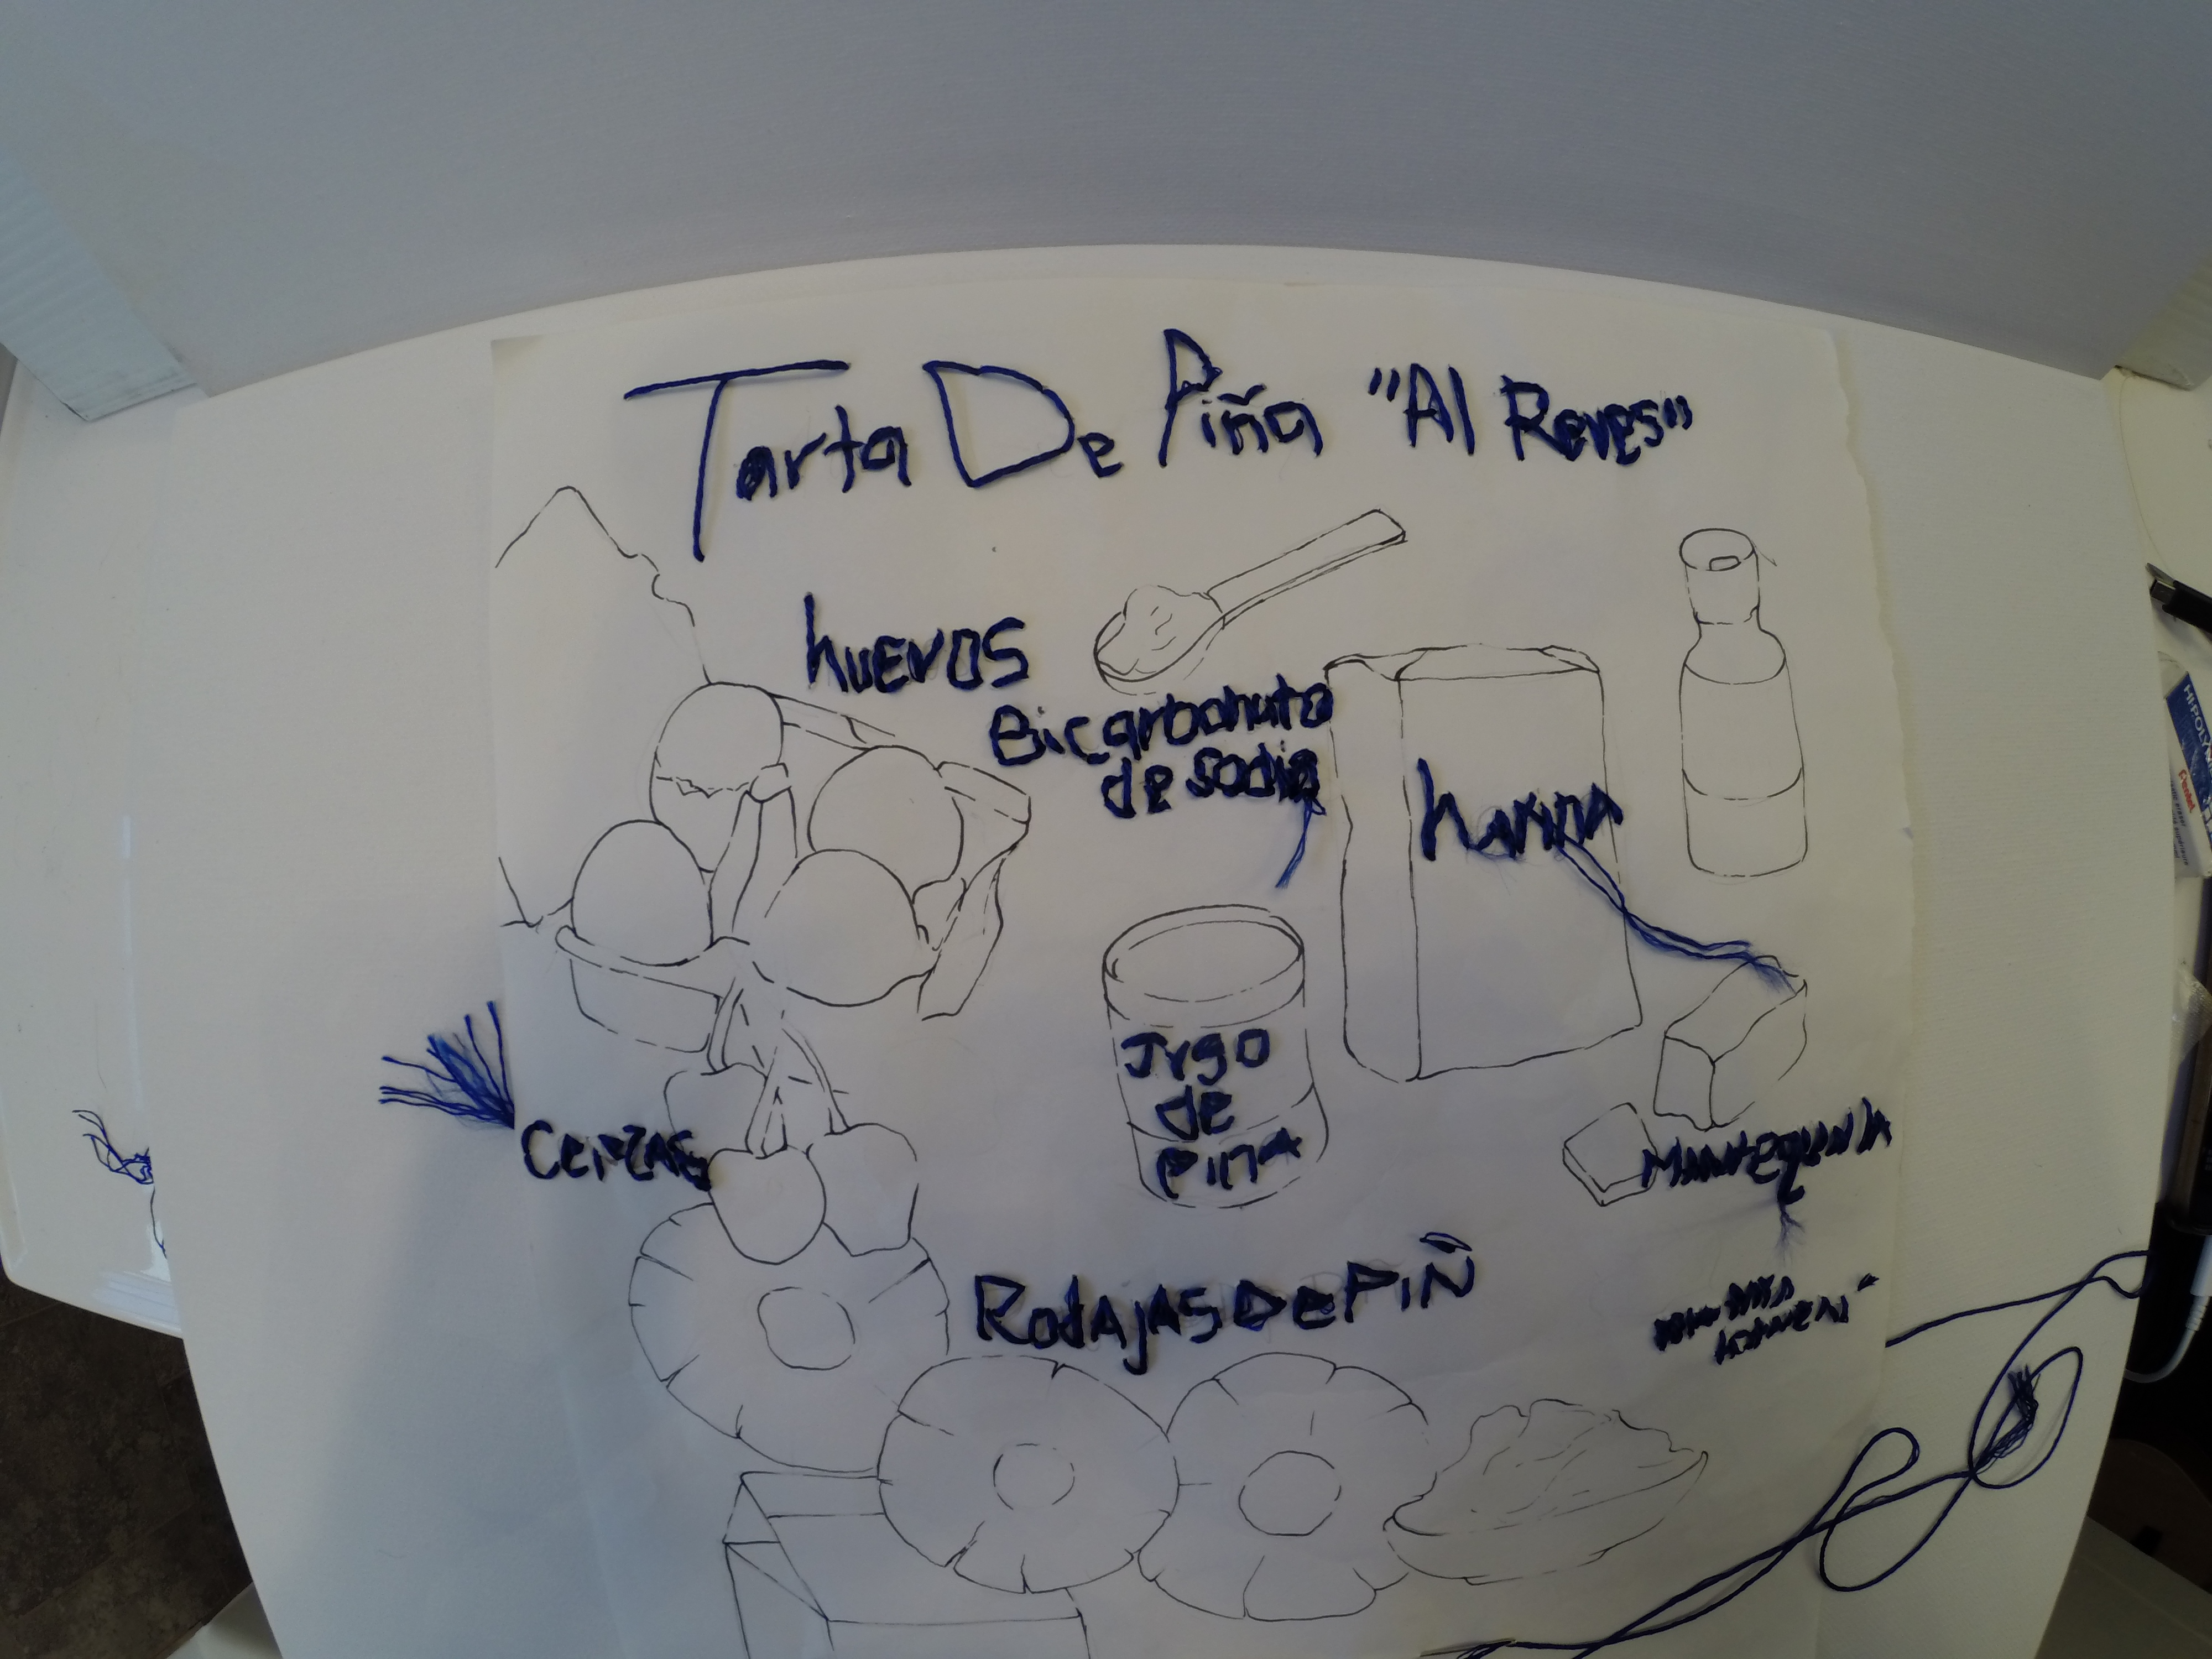 Tarta De Piña "Al Reves"
huevos
Bicarbonato
de sodio
harina
Jugo
de
Pina
Cerezas
MANTEQUILLA
Rodajas De PiÑ
HI-POLYM
Pentel